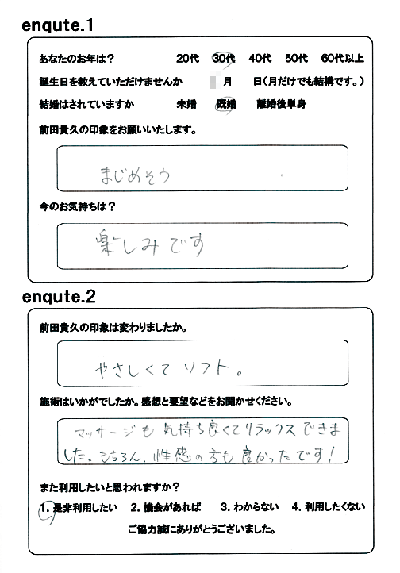 enqute.1
あなたのお年は? 20代 30代 40代 50代 60代以上
誕生日を教えていただけませんか 月 日(月だけでも結構です。)
結婚はされていますか 未婚 既婚 離婚後単身
前田貴久の印象をお願いいたします。
まじめそう
今のお気持ちは?
楽しみです
enqute.2
前田貴久の印象は変わりましたか。
やさしくてソフト。
施術はいかがでしたか。感想と要望などをお聞かせください。
マッサージも気持ち良くてリラックスできま
した。もちろん、性感の方も良かったです!
また利用したいと思われますか?
1. 是非利用したい 2. 機会があれば 3. わからない 4. 利用したくない
ご協力誠にありがとうございました。